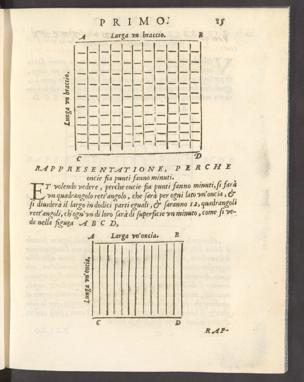 PRIMO.
25
A Larga vn braccio. B
Lunga vn braccio.
C D
RAPPRESENTATIONE, PERCHE
oncie fia punti fanno minuti.
ET volendo vedere, perche oncie fia punti fanno minuti, si farà
vn quadrangolo rett'angolo, che farà per ogni lato vn'oncia, &
si diuiderà il largo in dodici parti eguali, & saranno 12, quadrangoli
rett'angoli, ch'ogn'vn di loro sarà di superficie vn minuto, come si ve-
de nella figura A B C D,
A Larga vn'oncia. B
Lunga vn'oncia.
C D
RAP-